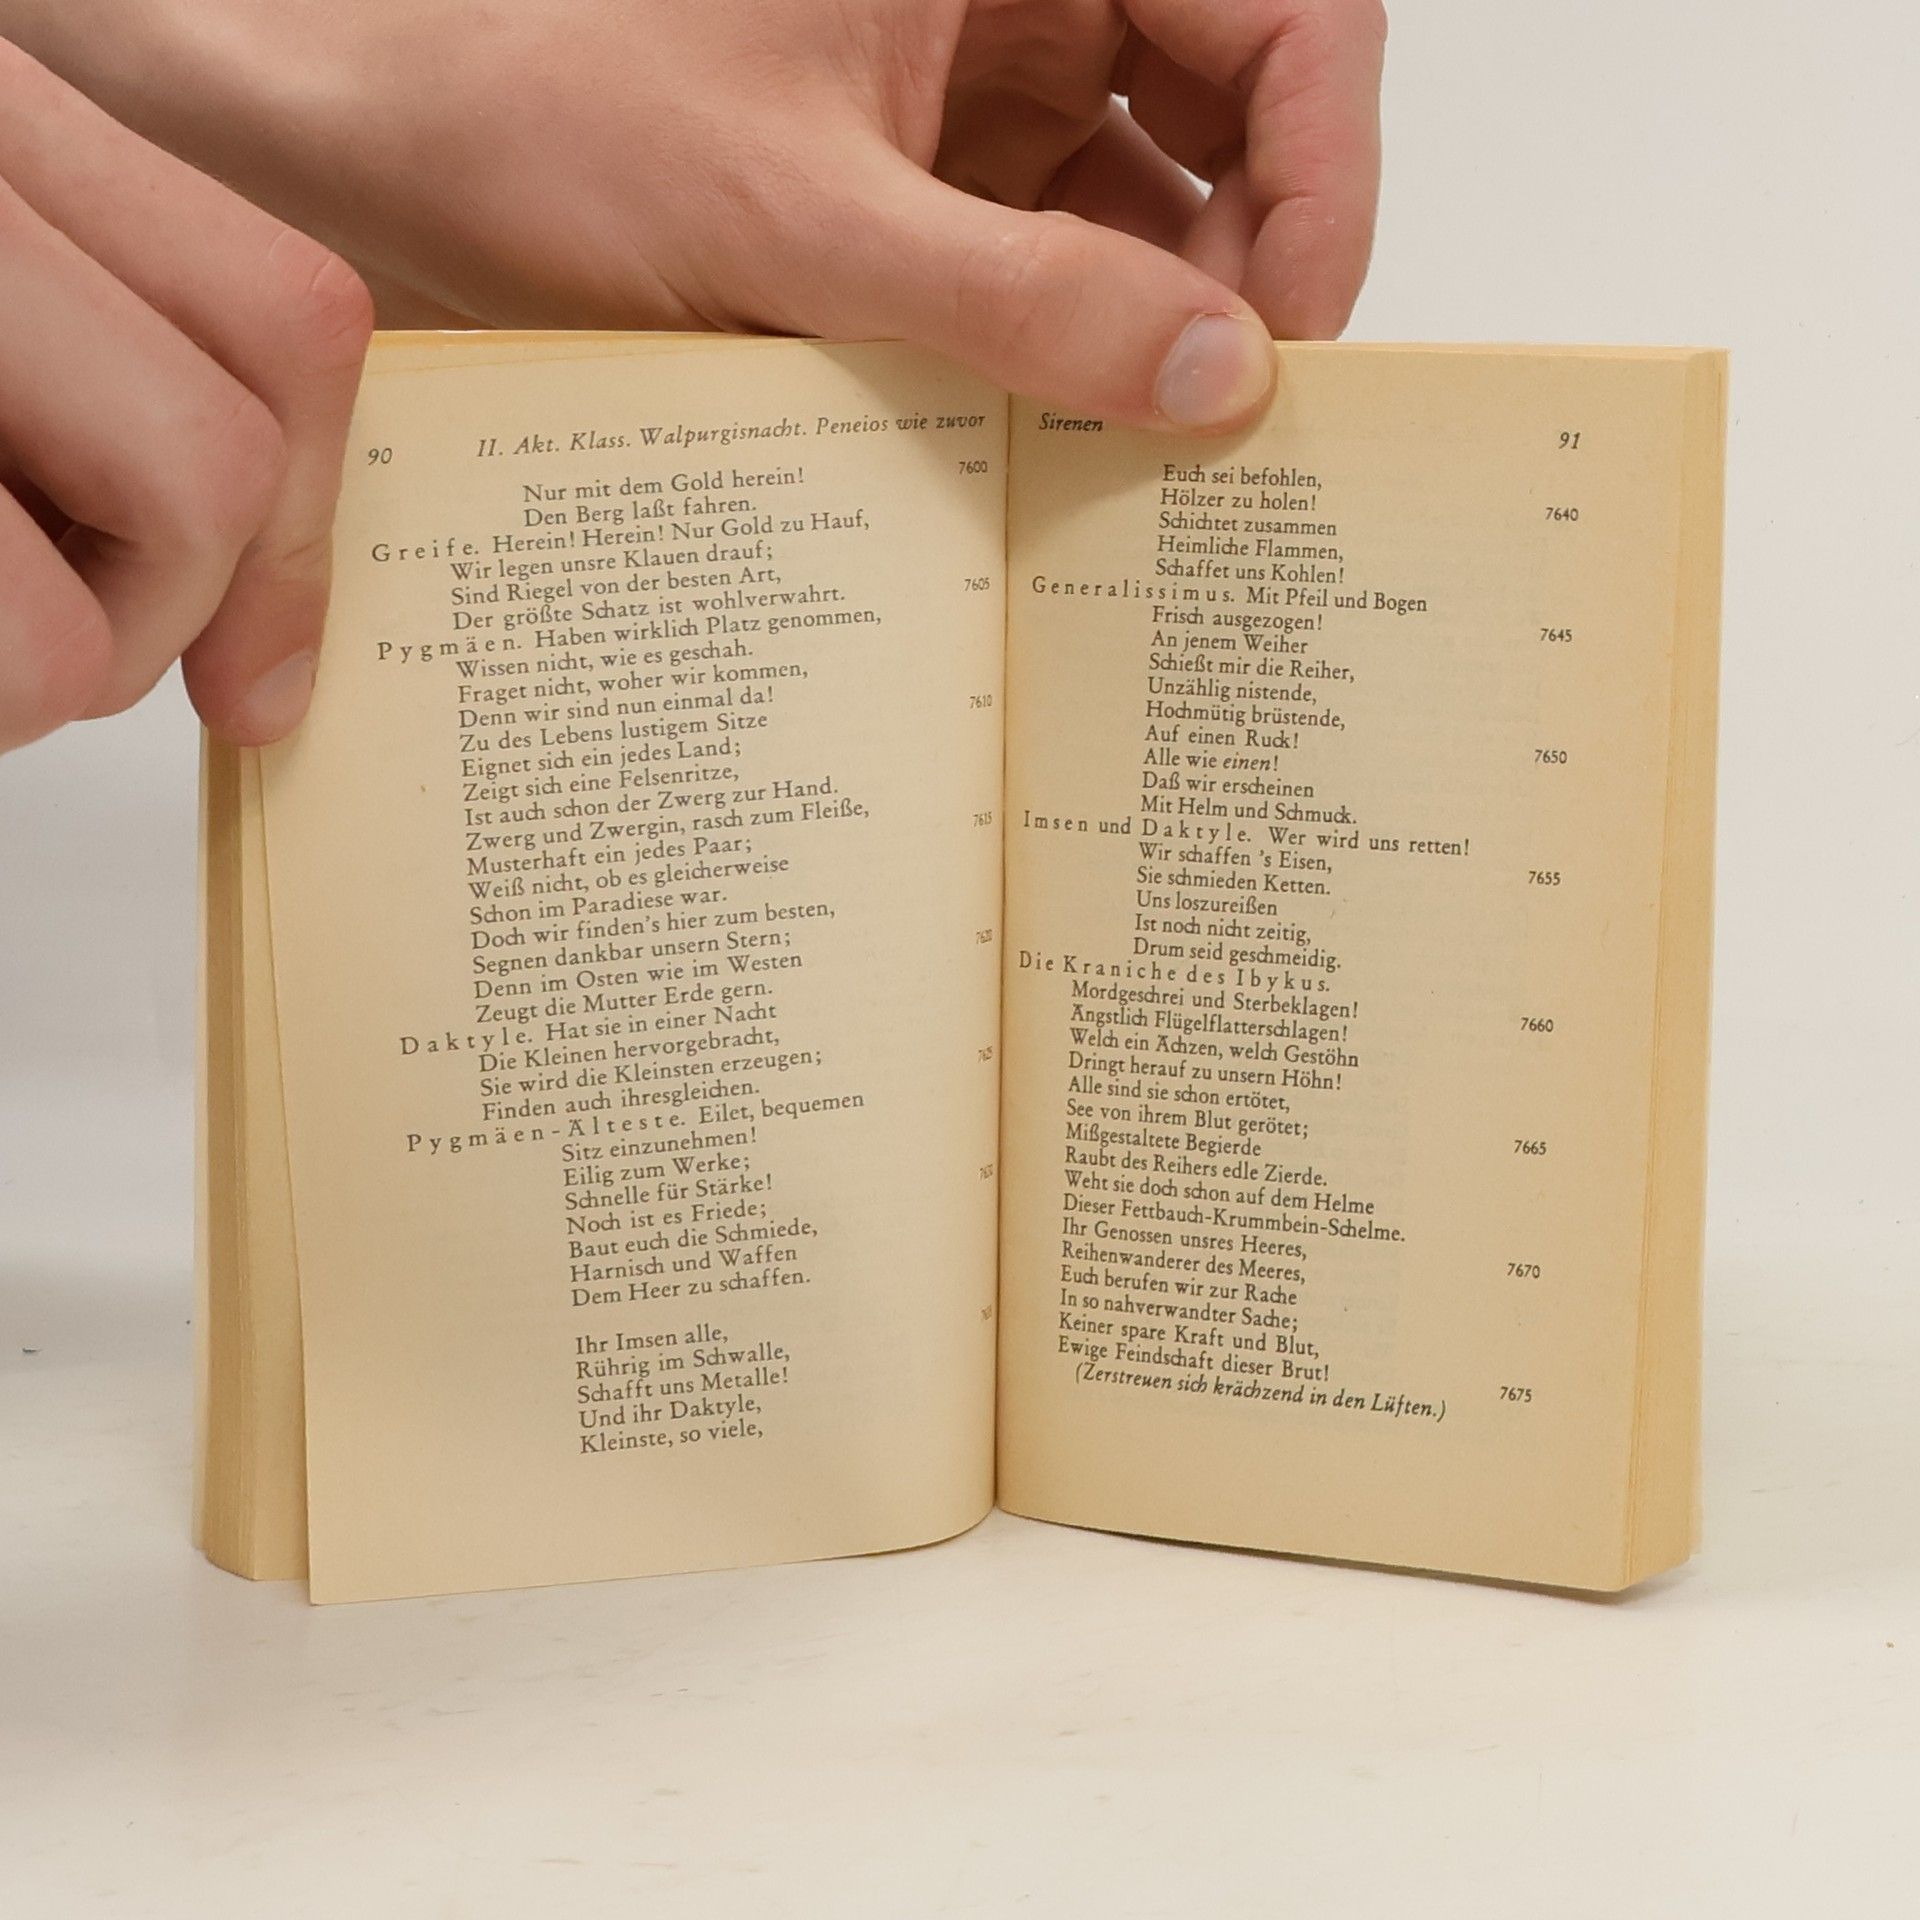 90 II. Akt. Klass. Walpurgisnacht. Peneios wie zuvor
Nur mit dem Gold herein! 7600
Den Berg laßt fahren.
Greife. Herein! Herein! Nur Gold zu Hauf,
Wir legen unsre Klauen drauf;
Sind Riegel von der besten Art,
Der größte Schatz ist wohlverwahrt. 7605
Pygmäen. Haben wirklich Platz genommen,
Wissen nicht, wie es geschah.
Fraget nicht, woher wir kommen,
Denn wir sind nun einmal da!
Zu des Lebens lustigem Sitze 7610
Eignet sich ein jedes Land;
Zeigt sich eine Felsenritze,
Ist auch schon der Zwerg zur Hand.
Zwerg und Zwergin, rasch zum Fleiße,
Musterhaft ein jedes Paar; 7615
Weiß nicht, ob es gleicherweise
Schon im Paradiese war.
Doch wir finden's hier zum besten,
Segnen dankbar unsern Stern;
Denn im Osten wie im Westen 7620
Zeugt die Mutter Erde gern.
Daktyle. Hat sie in einer Nacht
Die Kleinen hervorgebracht,
Sie wird die Kleinsten erzeugen;
Finden auch ihresgleichen. 7625
Pygmäen-Älteste. Eilet, bequemen
Sitz einzunehmen!
Eilig zum Werke;
Schnelle für Stärke!
Noch ist es Friede; 7630
Baut euch die Schmiede,
Harnisch und Waffen
Dem Heer zu schaffen.
Ihr Imsen alle,
Rührig im Schwalle, 7635
Schafft uns Metalle!
Und ihr Daktyle,
Kleinste, so viele,
Sirenen 91
Euch sei befohlen,
Hölzer zu holen! 7640
Schichtet zusammen
Heimliche Flammen,
Schaffet uns Kohlen!
Generalissimus. Mit Pfeil und Bogen
Frisch ausgezogen! 7645
An jenem Weiher
Schießt mir die Reiher,
Unzählig nistende,
Hochmütig brüstende,
Auf einen Ruck! 7650
Alle wie einen!
Daß wir erscheinen
Mit Helm und Schmuck.
Imsen und Daktyle. Wer wird uns retten!
Wir schaffen 's Eisen, 7655
Sie schmieden Ketten.
Uns loszureißen
Ist noch nicht zeitig,
Drum seid geschmeidig.
Die Kraniche des Ibykus.
Mordgeschrei und Sterbeklagen! 7660
Ängstlich Flügelflatterschlagen!
Welch ein Ächzen, welch Gestöhn
Dringt herauf zu unsern Höhn!
Alle sind sie schon ertötet,
See von ihrem Blut gerötet; 7665
Mißgestaltete Begierde
Raubt des Reihers edle Zierde.
Weht sie doch schon auf dem Helme
Dieser Fettbauch-Krummbein-Schelme.
Ihr Genossen unsres Heeres, 7670
Reihenwanderer des Meeres,
Euch berufen wir zur Rache
In so nahverwandter Sache;
Keiner spare Kraft und Blut,
Ewige Feindschaft dieser Brut! 7675
(Zerstreuen sich krächzend in den Lüften.)